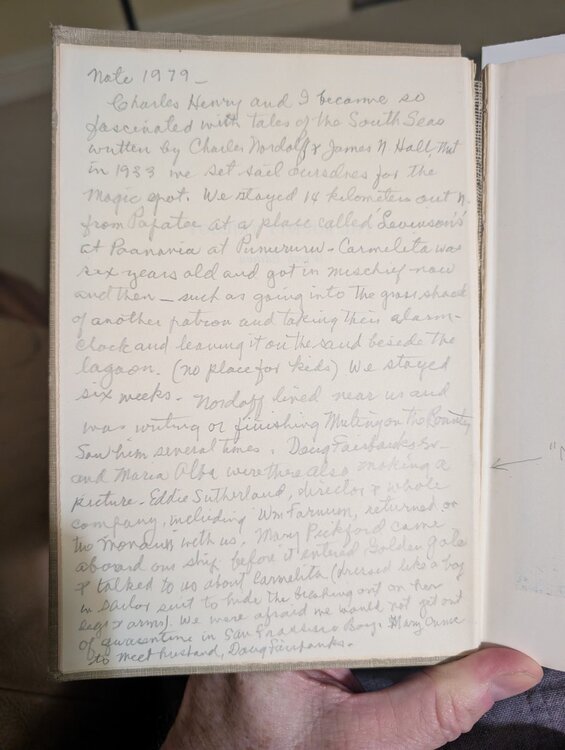 Note 1979 –
Charles Henry and I became so
fascinated with tales of the South Seas
written by Charles Nordoff & James N. Hall, that
in 1933 we set sail ourselves for the
magic spot. We stayed 14 kilometers out
from Papatee at a place called Levinson's
at Paanavia at Punururu – Carmelita was
six years old and got in mischief now
and then – such as going into the grass shack
of another patron and taking their alarm-
clock and leaving it on the sand beside the
lagoon. (no place for kids) We stayed
six weeks. Nordoff lived near us and
was writing or finishing Mutiny on the Bounty
Saw him several times. Doug Fairbanks Sr–
and Maria Alba were there also making a
picture. Eddie Sutherland, director & whole
company, including Wm Farnum, returned on
the "Monowai" with us. Mary Pickford came
aboard our ship before it entered Golden Gate
& talked to us about Carmelita (dressed like a boy
in sailor suit to hide the breaking out on her
legs & arms). We were afraid we would not get out
of quarantine in San Francisco Bay. Mary came
to meet husband, Doug Fairbanks.